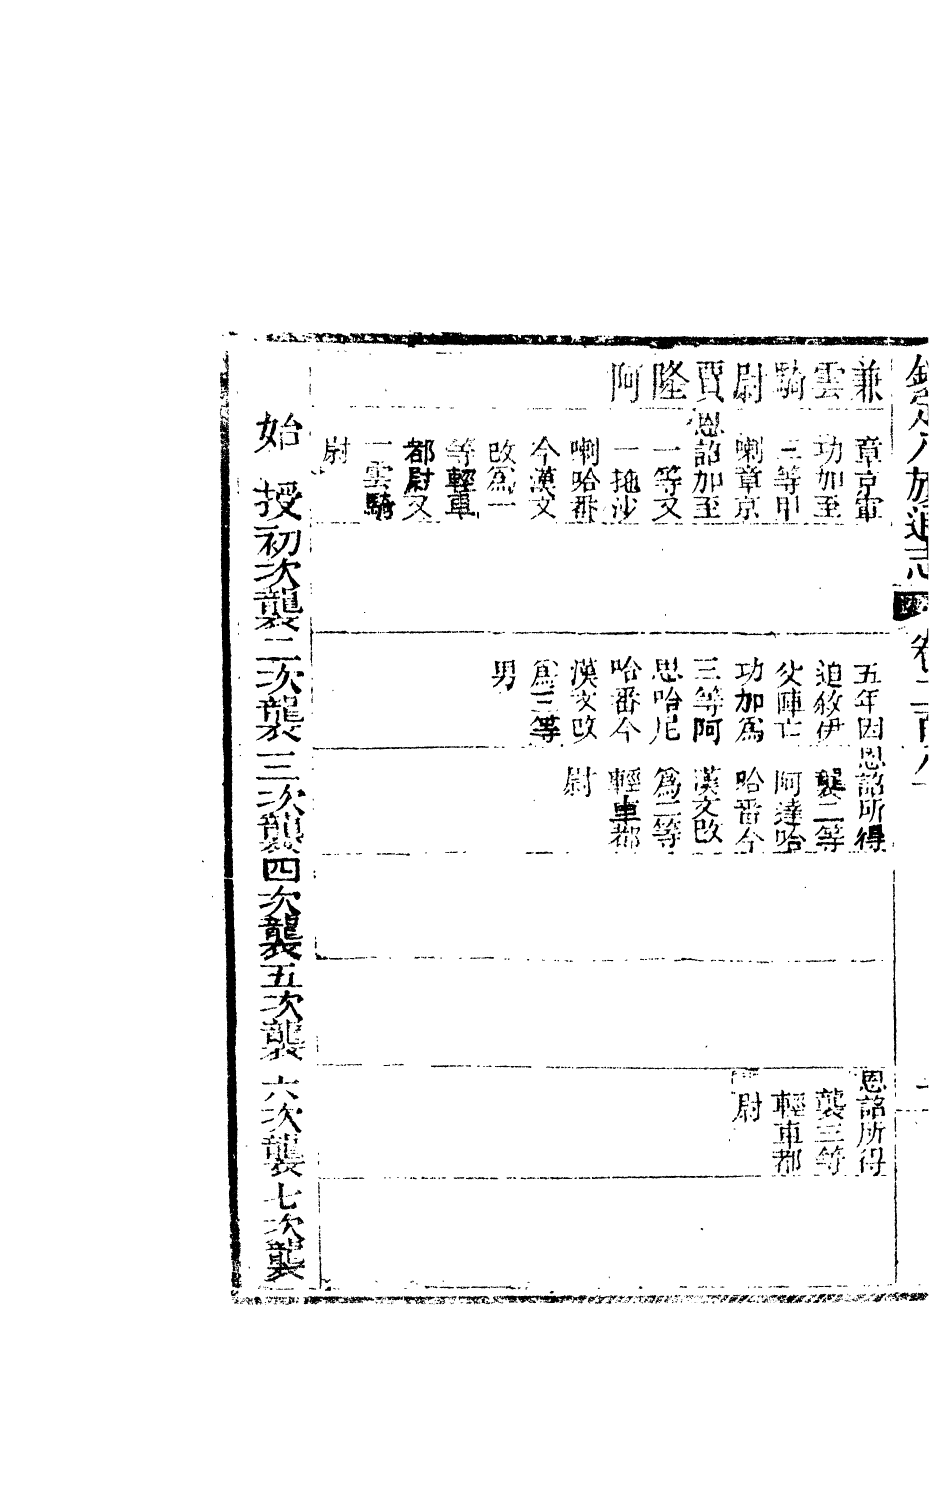 欽定八旗通志
卷二百八
兼雲騎尉賈隆阿
章京軍
功加至
二等甲
喇章京
恩詔加至
一等又
一拖沙
喇哈番
今漢文
改爲一
等輕車
都尉又
一雲騎
尉
五年因
追敘伊
父陣亡
功加爲
三等阿
思哈尼
哈番今
漢文改
爲三等
男
恩詔所得
襲二等
阿達哈
哈番今
漢文改
爲二等
輕車都
尉
恩詔所得
襲三等
輕車都
尉
始授
初次襲
二次襲
三次襲
四次襲
五次襲
六次襲
七次襲